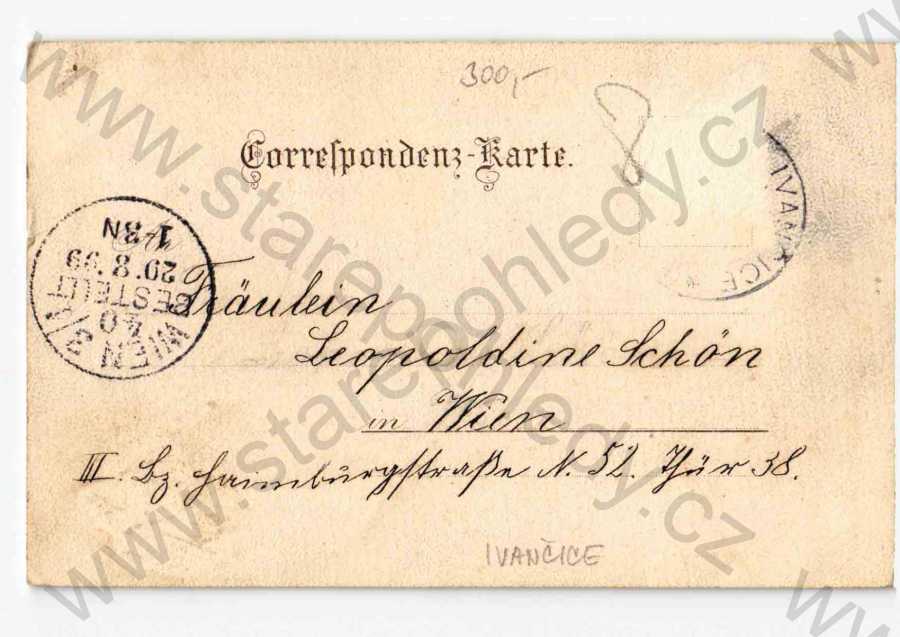 300,-
8
Correspondenz-Karte.
IVANČICE *
WIEN 3/1
40
BESTELLT
29.8.99
1-3N
Fräulein
Leopoldine Schön
in Wien
III. Bz. Hainburgstraße N. 52. Thür 38.
IVANČICE
www.starepohledy.cz